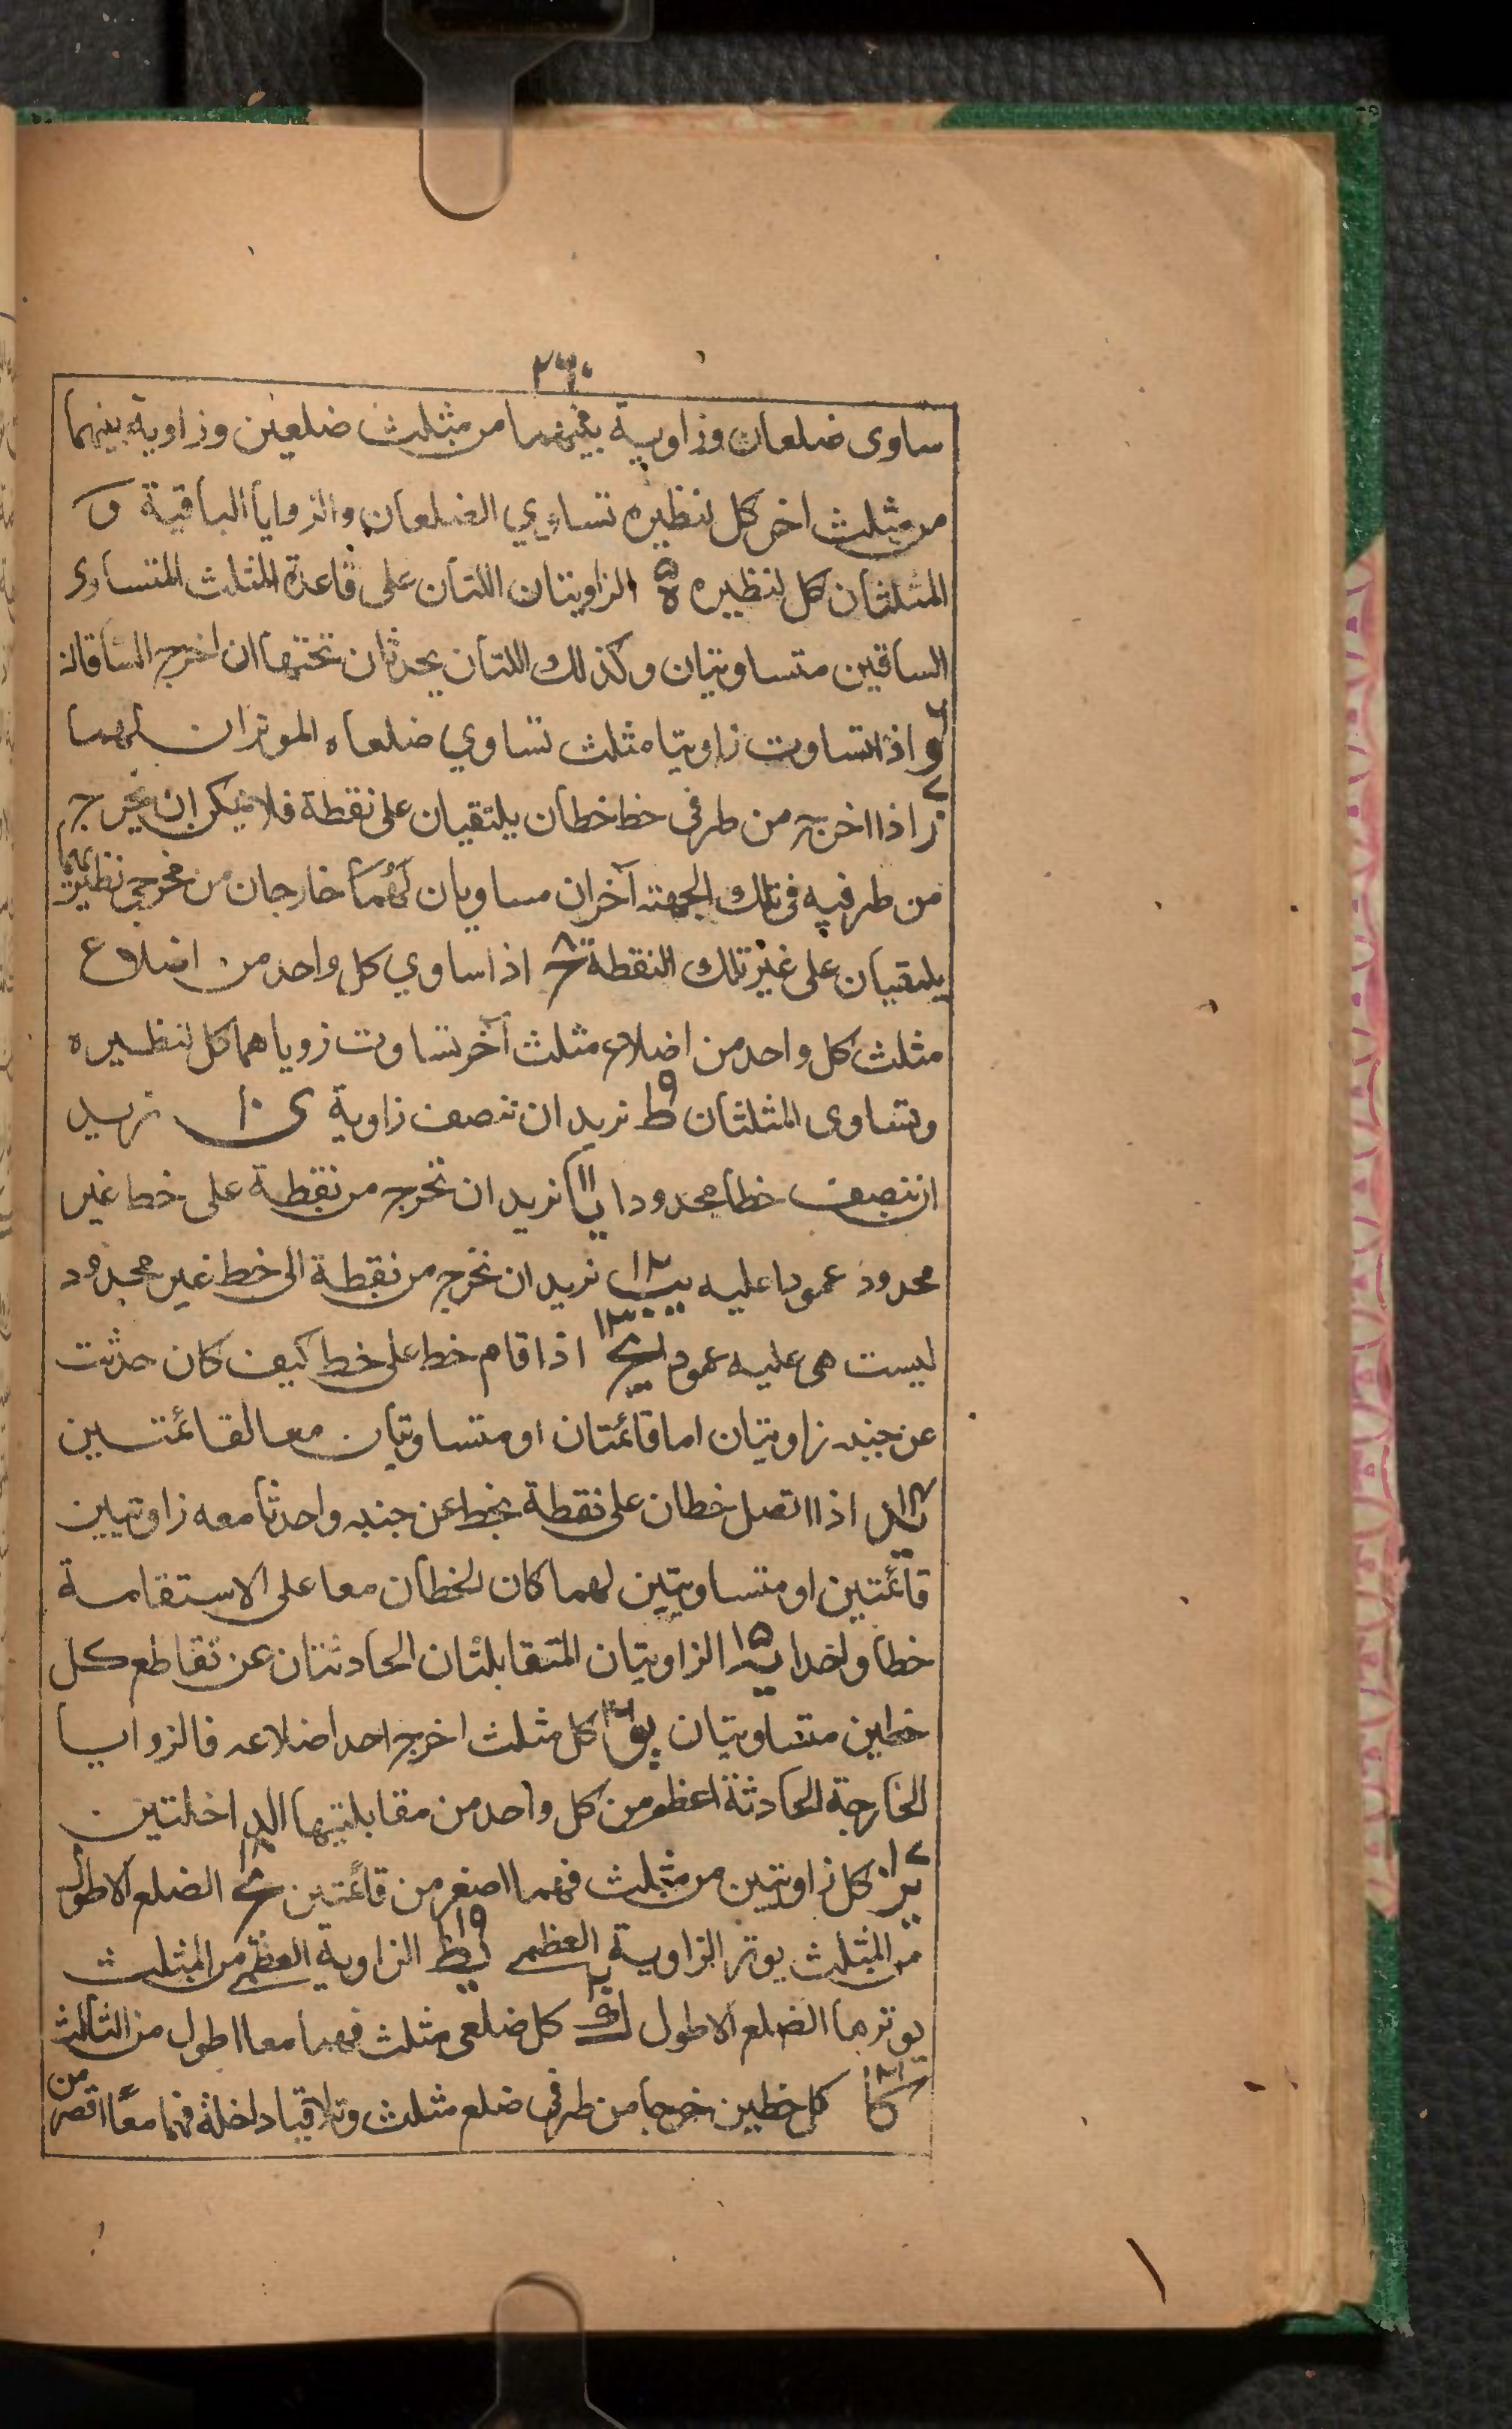 ٢٦٠
ساوى ضلعان وزاوية بينهما من مثلث ضلعين وزاوية بينهما
من مثلث اخر كل لنظيره تساوي الضلعان والزوايا الباقية و
المثلثان كل لنظيره ه ٥ الزاويتان اللتان على قاعدة المثلث المتساوى
الساقين متساويتان وكذلك اللتان يحدثان تحتها ان اخرج الساقان
و ٦ اذا تساوت زاويتا مثلث تساوي ضلعاه الموتران لهما
ز ٧ اذا اخرج من طرفى خط خطان يلتقيان على نقطة فلا يمكن ان يخرج
من طرفيه فى تلك الجهته آخران مساويان لهما خارجان من مخرجى نظيرهما
يلتقيان على غير تلك النقطة ح ٨ اذا ساوي كل واحد من اضلاع
مثلث كل واحد من اضلاع مثلث آخر تساوت زوياهما كل لنظيره
وتساوى المثلثان ط ٩ نريد ان ننصف زاوية ى ١٠ نريد
ان ننصف خطا محدودا يا ١١ نريد ان نخرج من نقطة على خط غير
محدود عمودا عليه يب ١٢ نريد ان نخرج من نقطة الى خط غير محدود
ليست هى عليه عمودا يج ١٣ اذا قام خط على خط كيف كان حدثت
عن جنبه زاويتان اما قائمتان او متساويتان معا لقائمتين
يد ١٤ اذا اتصل خطان على نقطة بخط عن جنبه واحدثا معه زاويتين
قائمتين او متساويتين لهما كان الخطان معا على الاستقامة
خطا واحدا يه ١٥ الزاويتان المتقابلتان الحادثتان عن تقاطع كل
خطين متساويتان يو ١٦ كل مثلث اخرج احد اضلاعه فالزوايا
الخارجة الحادثة اعظم من كل واحد من مقابلتيها الداخلتين
يز ١٧ كل زاويتين من مثلث فهما اصغر من قائمتين يح ١٨ الضلع الاطول
من المثلث يوتر الزاوية العظمى يط ١٩ الزاوية العظمى من المثلث
يوترها الضلع الاطول ك ٢٠ كل ضلعى مثلث فهما معا اطول من الثالث
كا ٢١ كل خطين خرجا من طرفى ضلع مثلث وتلاقيا داخله فهما معًا اقصر من